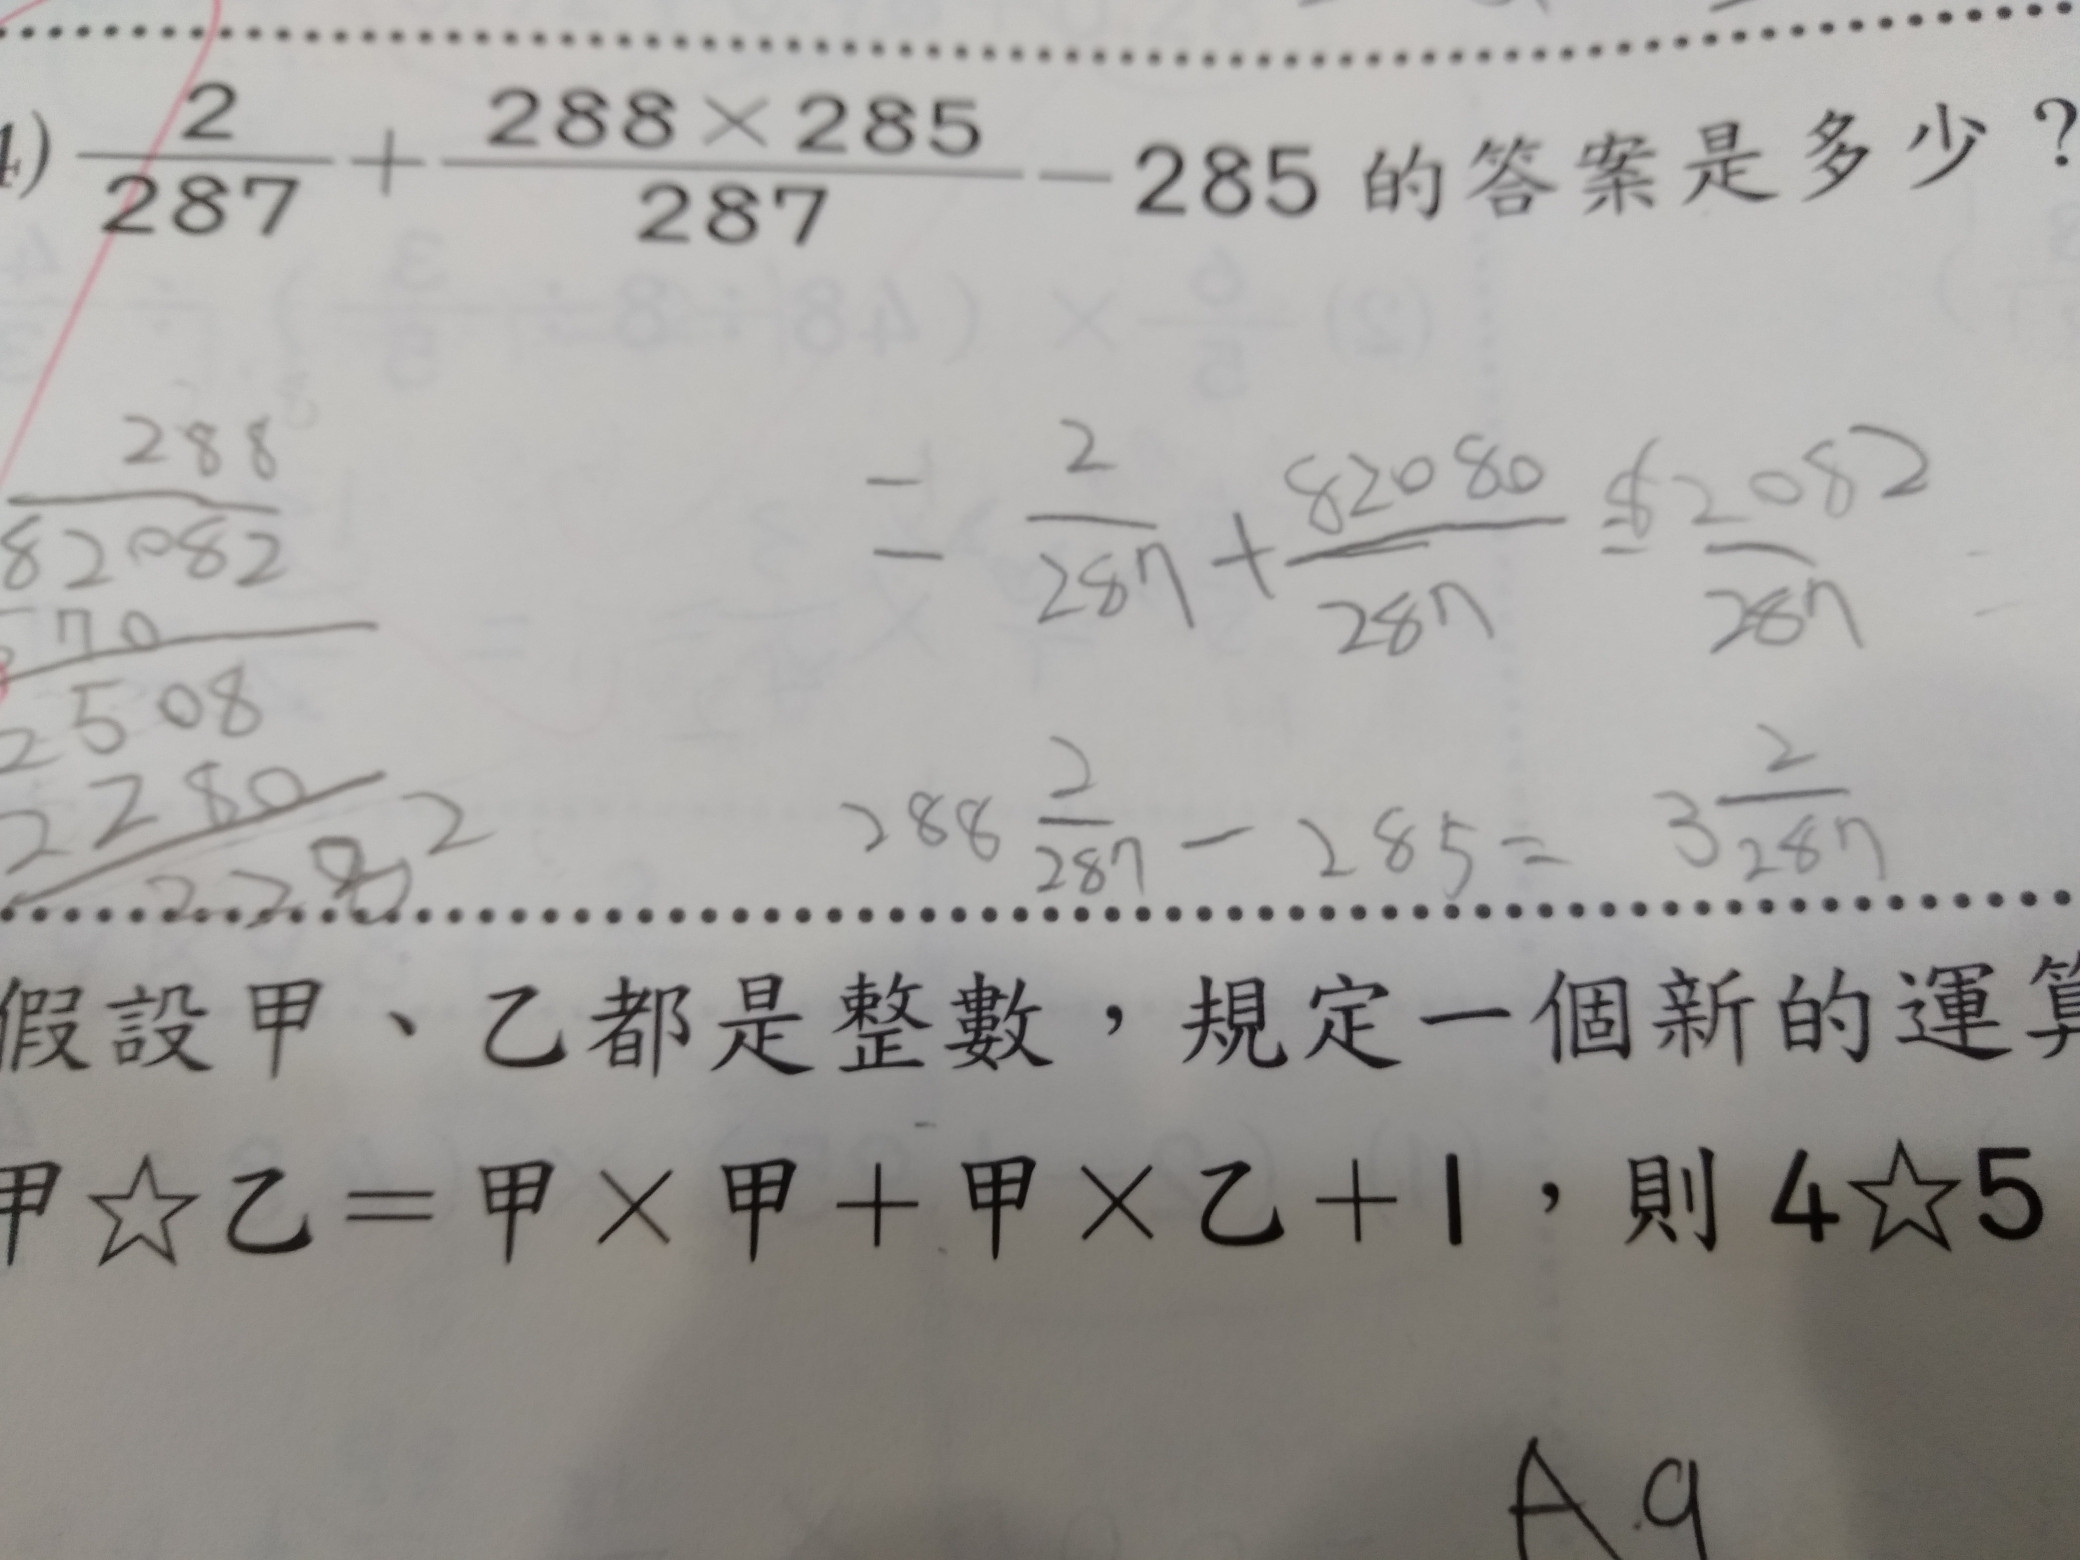 4) 2/287 + 288×285/287 − 285 的答案是多少？
288
82082
570
2508
2280
2282
= 2/287 + 82080/287 = 82082/287
288 2/287 − 285 = 3 2/287
假設甲、乙都是整數，規定一個新的運算
甲☆乙＝甲×甲＋甲×乙＋1，則 4☆5
A.9